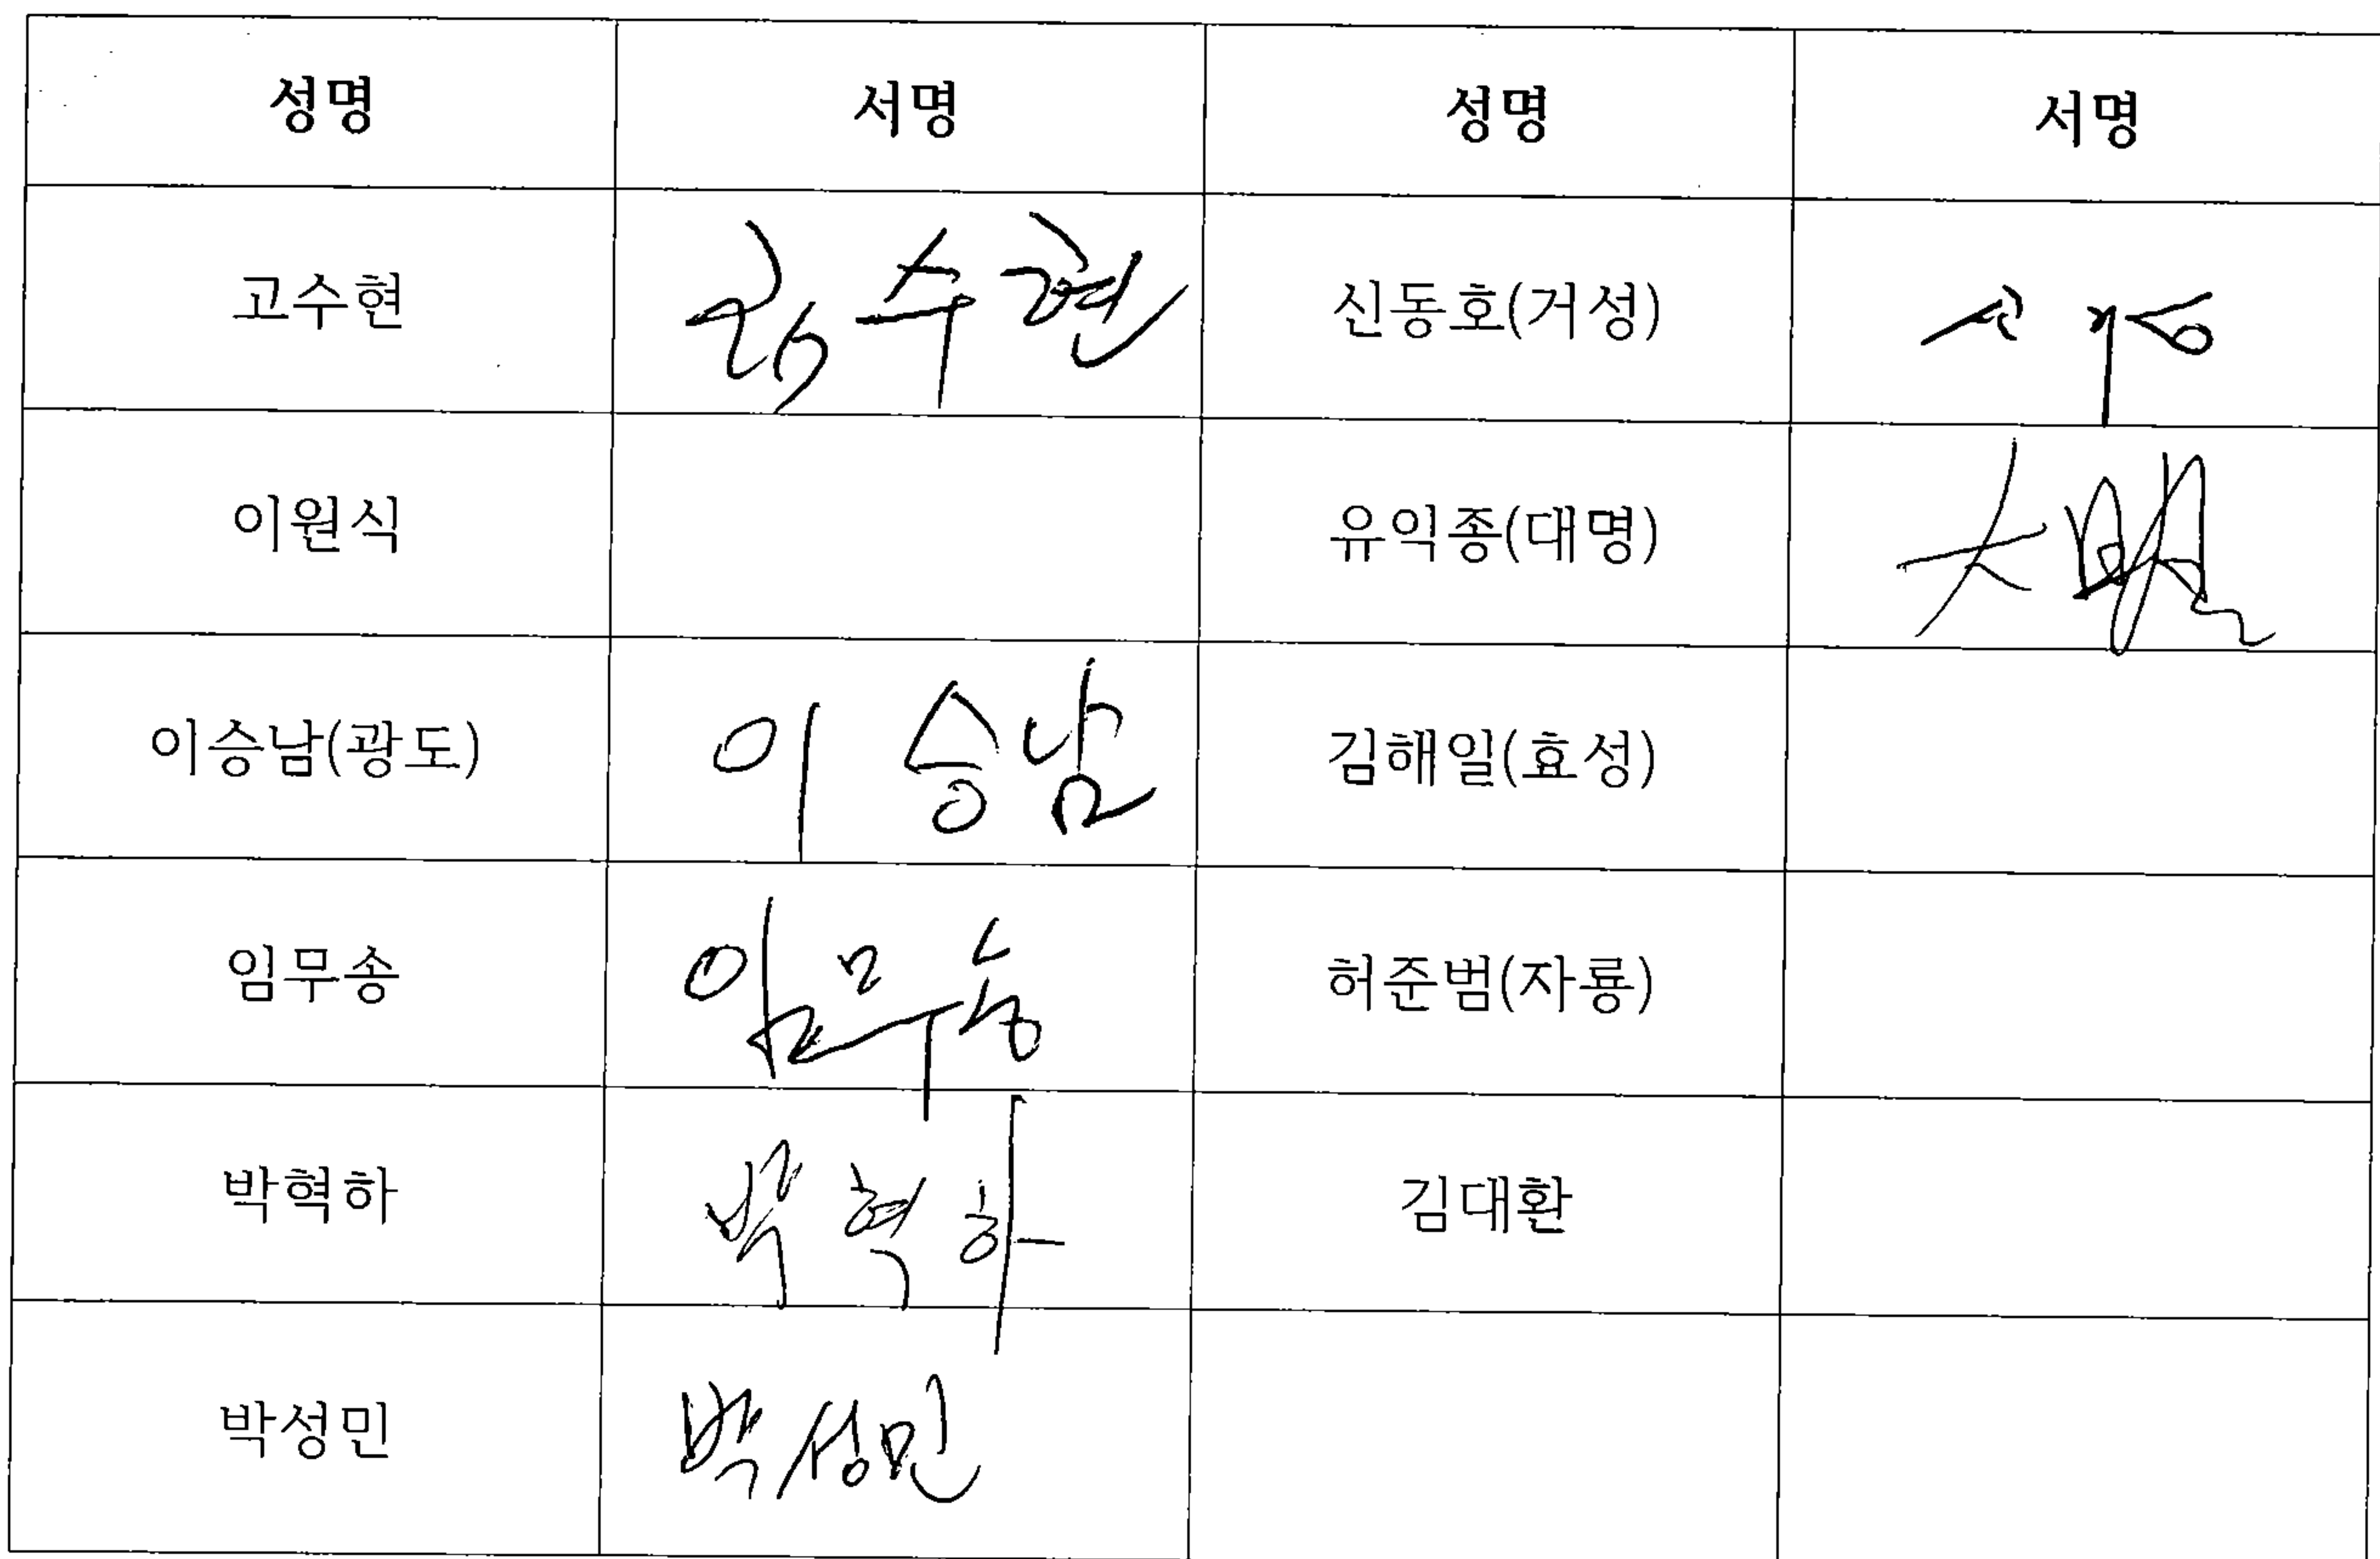 성명 서명 성명 서명
고수현 고수현 신동호(거성)
이원식 유익종(대명)
이승남(광도) 이승남 김해일(효성)
임무송 임무송 허준범(자룡)
박혁하 박혁하 김대환
박성민 박성민